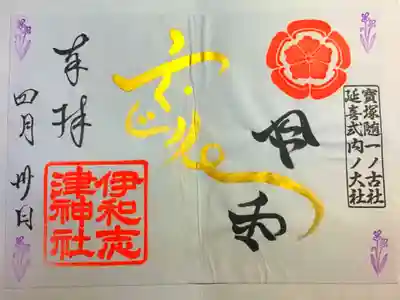 寶塚随一ノ古社
延喜式内ノ大社
奉拝
伊和志
津神社
四月卅日